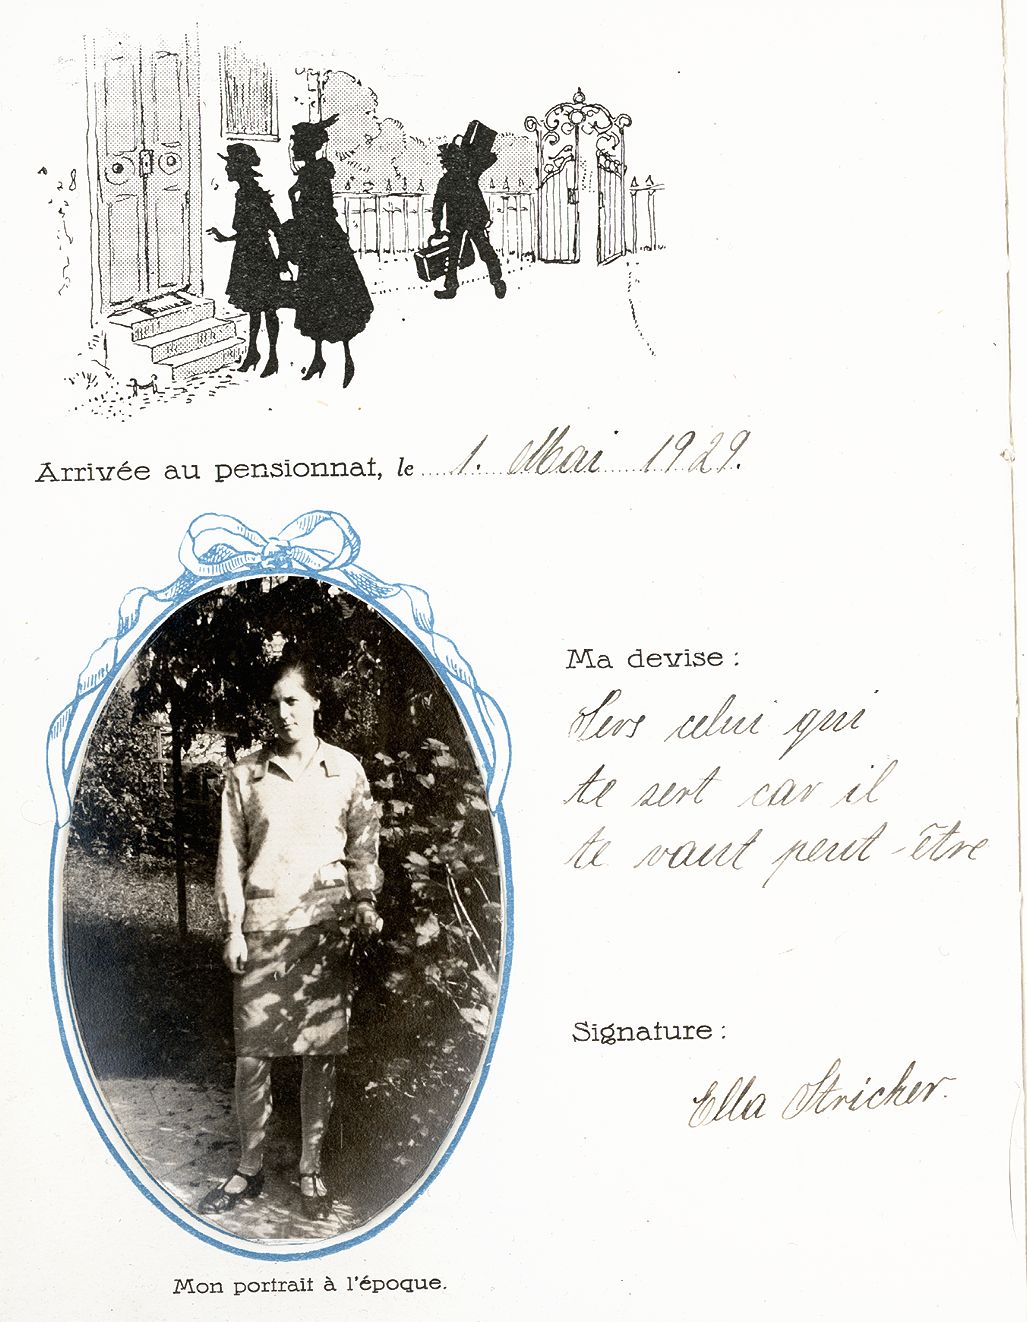 Arrivée au pensionnat, le 1. Mai 1929.
Ma devise :
Sers celui qui
te sert car il
te vaut peut-être
Signature :
Ella Stricker.
Mon portrait à l'époque.